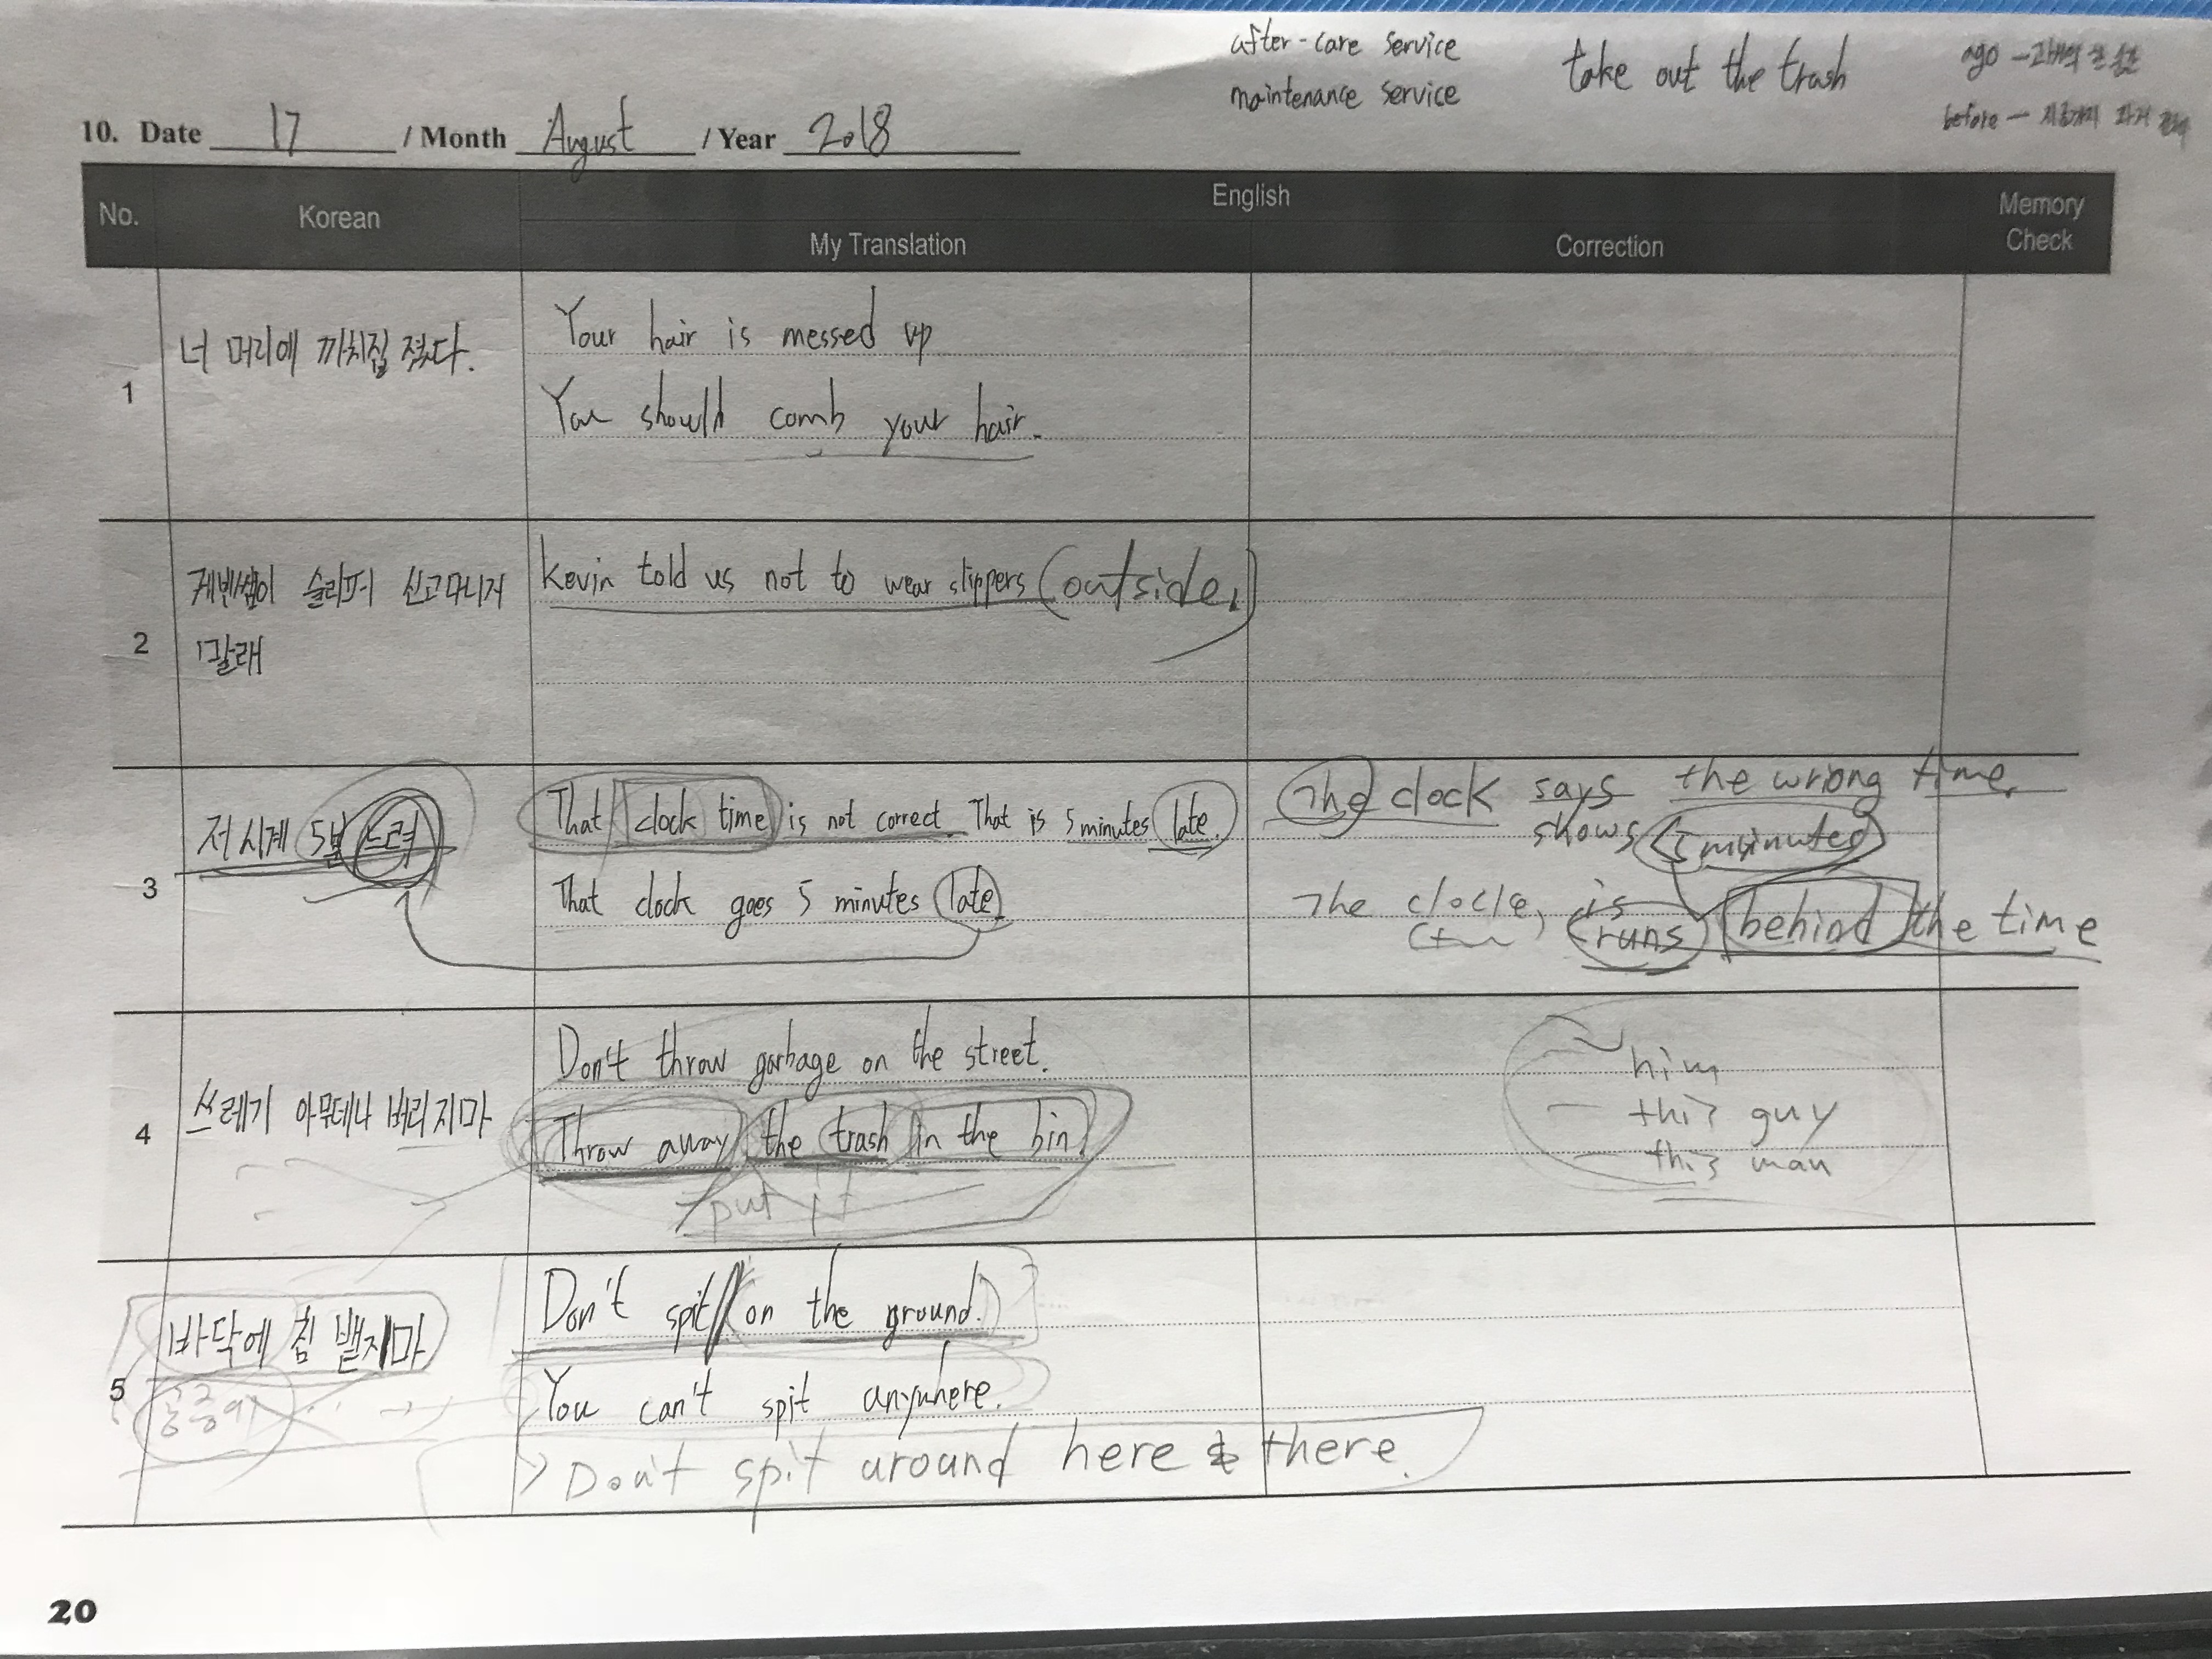 after-care service
maintenance service
take out the trash
ago -
before -
10. Date 17 / Month August / Year 2018
No.
Korean
English
My Translation
Correction
Memory Check
1
너 머리에 까치집 졌다.
Your hair is messed up
You should comb your hair.
2
케빈쌤이 슬리퍼 신고다니지
말래
Kevin told us not to wear slippers (outside.)
3
저 시계 5분 느려
That clock time is not correct. That is 5 minutes late.
That clock goes 5 minutes late.
The clock says the wrong time.
shows 5 minutes
The clock is behind the time
runs
4
쓰레기 아무데나 버리지마
Don't throw garbage on the street.
Throw away the trash in the bin.
put it
him
- this guy
- this man
5
바닥에 침 뱉지마
Don't spit on the ground.
You can't spit anywhere.
> Don't spit around here & there.
20